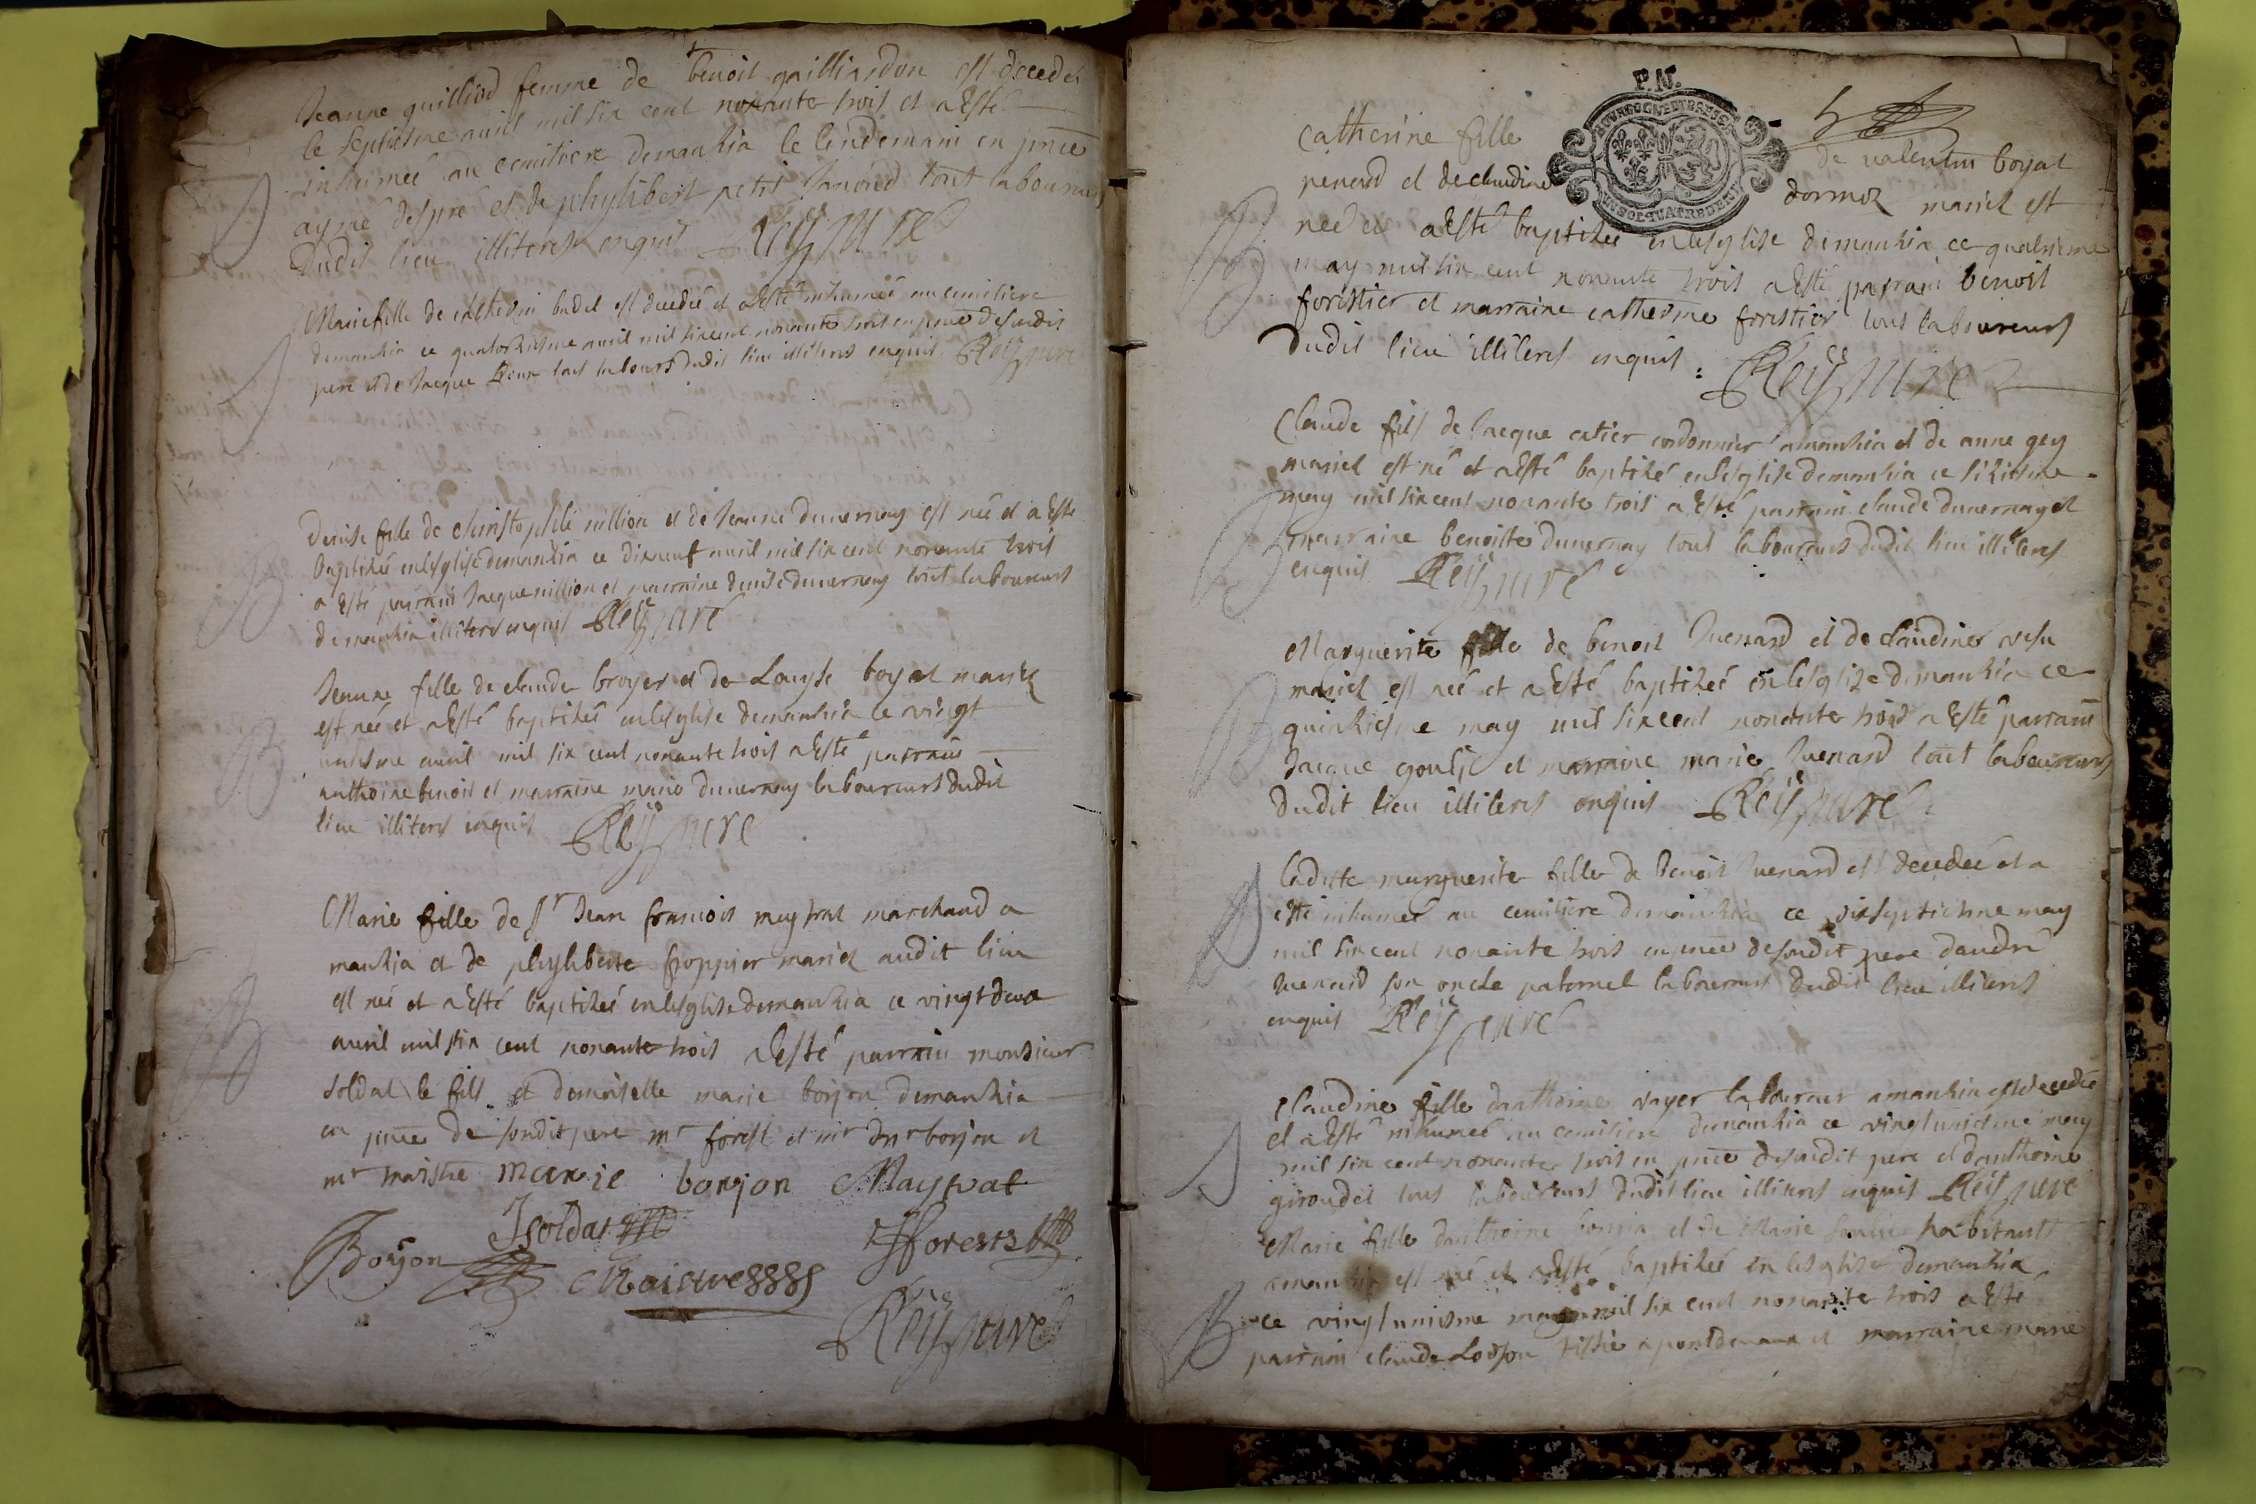 Jeanne guilliod femme de benoit gailliardon est decedé
le septiesme auril mil six cent nonante trois et a esté
inhumeé au cemitiere demanhia le lendemain en pnce
aymé despré et de phylibert petit tout laboureurs
dudit lieu illiteres enquis Reÿ curé
Marie fille de badel est decedeé et a esté inhumeé au cemitiere
demanhia ce quatorhiesme auril mil six cent nonante trois en pnce desondit
pere et de Jacque tout labours dudit lieu illiteres enquis Reÿ curé
Denise fille de christophle million et de Jeanne duuernay est née et a esté
baptiheé en lesglise demanhia ce dixneuf auril mil six cent nonante trois
a esté parrain Jacque million et marraine denise duuernay tout laboureurs
demanhia illiteres enquis Reÿ curé
Jeanne fille de claude broyer et de Louyse boyat mariez
est neé et a esté baptiheé en lesglise demanhia ce vingt
uniesme auril mil six cent nonante trois a esté parrain
anthoine benoit et marraine marie duuernay laboureurs dudit
lieu illiteres enquis Reÿ curé
Marie fille de sr Jean francois maytrat marchand a
manhia et de phyliberte froppier mariez audit lieu
est neé et a esté baptiheé en lesglise demanhia ce vingtdeux
auril mil six cent nonante trois a esté parrain monsieur
soldat le fils et demoiselle marie borjon demanhia
en pnce de sondit pere mr forest et mr borjon et
mr maistre marie borjon Maytrat
Jsoldat
Borjon Maistre forest
Reÿ curé
P. N.
catherine fille de valentin boyat
penard et de claudine dormoz mariez est
neé et a esté baptiheé en lesglise demanhia ce quatriesme
may mil six cent nonante trois a esté parrain benoit
forestier et marraine catherine forestier tous laboureurs
dudit lieu illiteres enquis Reÿ curé
Claude fils de Jacque catier cordonnier amanhia et de anne gey
mariez est né et a esté baptihé en lesglise demanhia ce sihiesme
may mil six cent nonante trois a esté parrain claude duuernay et
marraine benoiste duuernay tout laboureurs dudit lieu illiteres
enquis Reÿ curé
Marguerite fille de benoit Juenard et de claudine
mariez est neé et a esté baptiheé en lesglise demanhia ce
quinhiesme may mil six cent nonante trois a esté parrain
Jacque et marraine marie Juenard tout laboureurs
dudit lieu illiteres enquis Reÿ curé
laditte marguerite fille de benoit Juenard est decedeé et a
esté inhumeé au cemitiere demanhia ce dixseptiesme may
mil six cent nonante trois en pnce desondit pere dandré
Juenard son oncle paternel laboureurs dudit lieu illiteres
enquis Reÿ curé
claudine fille danthoine voyer laboureur amanhia est decedeé
et a esté inhumeé au cemitiere demanhia ce vingtuniesme may
mil six cent nonante trois en pnce desondit pere et danthoine
giroudet tous laboureurs dudit lieu illiteres enquis Reÿ curé
Marie fille danthoine et de Marie habitants
amanhia est neé et a esté baptiheé en lesglise demanhia
ce vingtuniesme may mil six cent nonante trois a esté
parrain claude tissier a pontdevaux et marraine marie